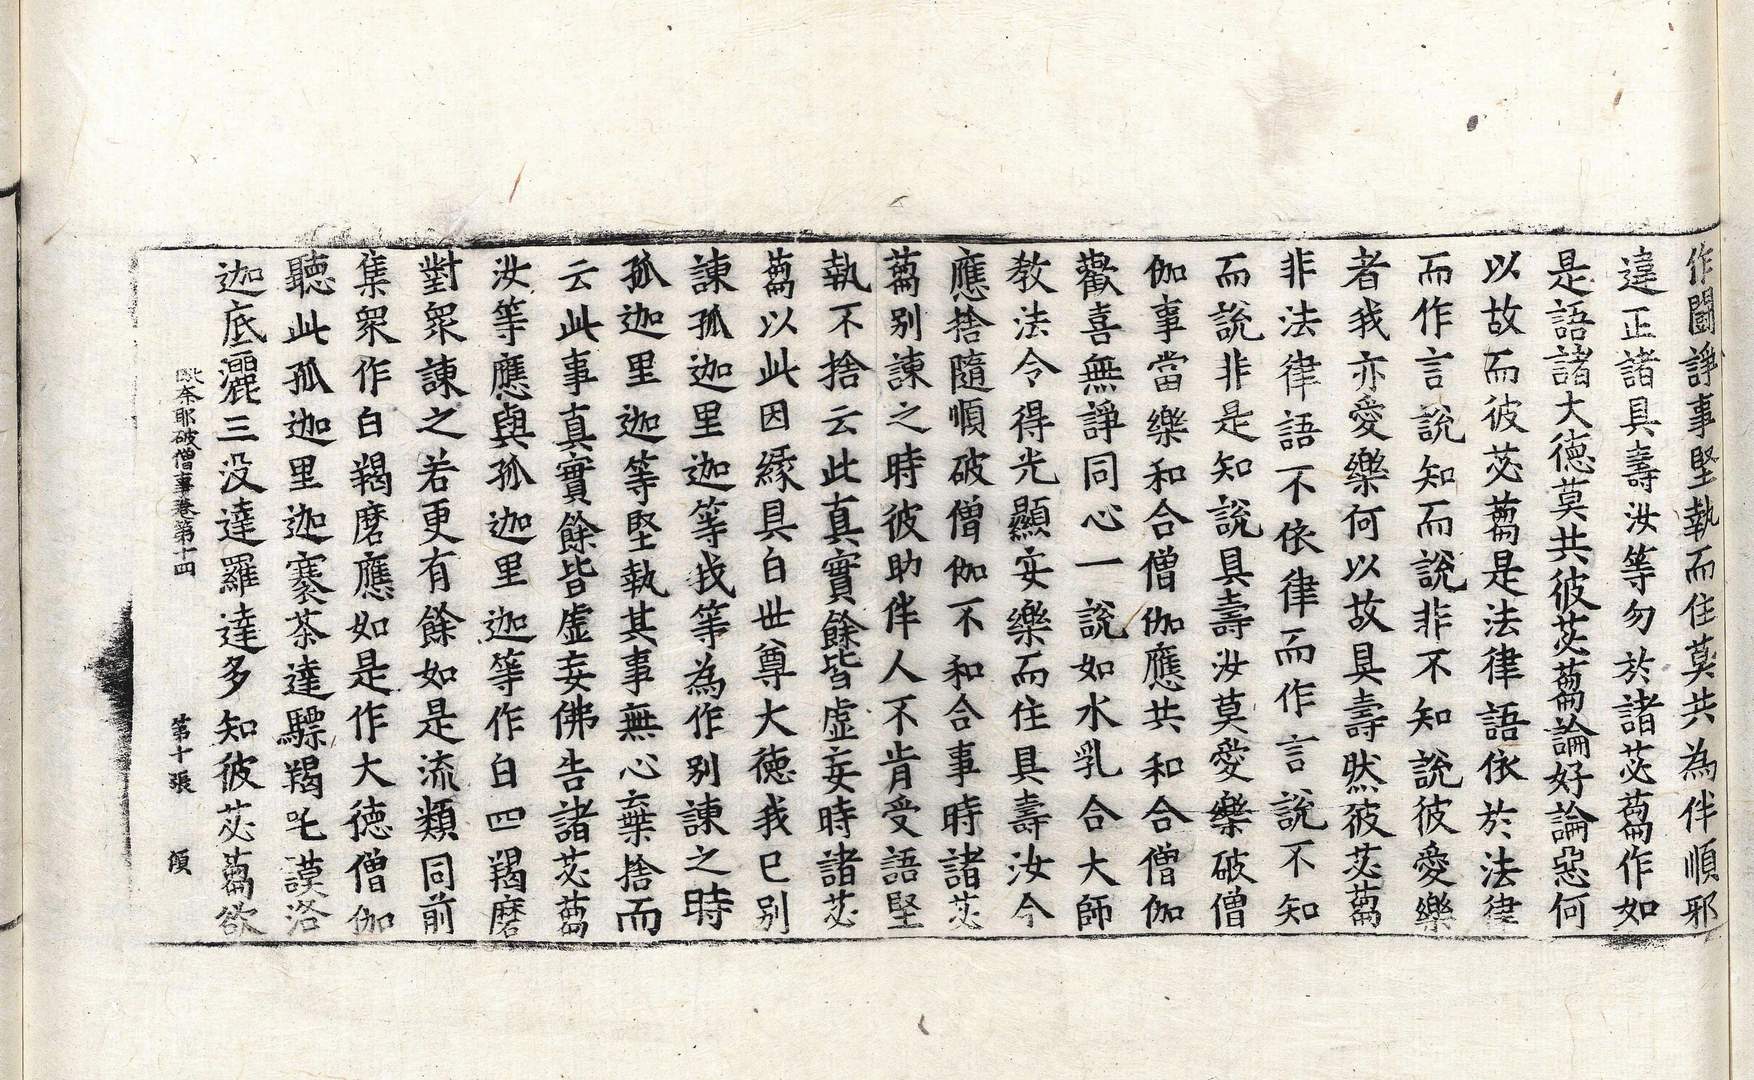 作闘諍事堅執而住莫共為伴順邪
違正諸具壽汝等勿於諸苾蒭作如
是語諸大徳莫共彼苾蒭論好論惡何
以故而彼苾蒭是法律語依於法律
而作言說知而說非不知說彼愛樂
者我亦愛樂何以故具壽然彼苾蒭
非法律語不依律而作言說不知
而說非是知說具壽汝莫愛樂破僧
伽事當樂和合僧伽應共和合僧伽
歡喜無諍同心一說如水乳合大師
教法令得光顯安樂而住具壽汝今
應捨隨順破僧伽不和合事時諸苾
蒭別諫之時彼助伴人不肯受語堅
執不捨云此真實餘皆虛妄時諸苾
蒭以此因緣具白世尊大徳我已別
諫孤迦里迦等我等為作別諫之時
孤迦里迦等堅執其事無心棄捨而
云此事真實餘皆虛妄佛告諸苾蒭
汝等應與孤迦里迦等作白四羯磨
對衆諫之若更有餘如是流類同前
集衆作白羯磨應如是作大徳僧伽
聽此孤迦里迦褰荼達驃羯吒謨洛
迦底灑三没達羅達多知彼苾蒭欲
奈耶破僧事卷第十四 第十張 頌